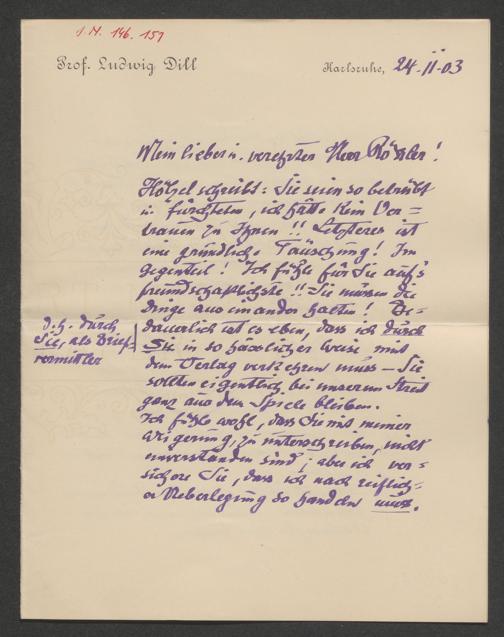 J.N. 146.151
Prof. Ludwig Dill
Karlsruhe, 24.II.03
Mein lieber u. verehrter Herr Rößler!
Hölzel schreibt: Sie seien so betrübt
u. fürchteten, ich hätte kein Ver=
trauen zu Ihnen!! Letzteres ist
eine gründliche Täuschung! Im
Gegenteil! Ich fühle für Sie auf's
freundschaftlichste!! Sie müssen die
Dinge auseinander halten! Be-
dauerlich ist es eben, dass ich durch
Sie in so hässlicher Weise mit
dem Verlag verkehren muss – Sie
sollten eigentlich bei unserem Streit
ganz aus dem Spiele bleiben.
Ich fühle wohl, dass Sie mit meiner
Weigerung, zu unterschreiben, nicht
einverstanden sind; aber ich ver=
sichere Sie, dass ich nach reiflich=
er Ueberlegung so handeln muss.
d.h. durch
Sie, als Brief-
vermittler